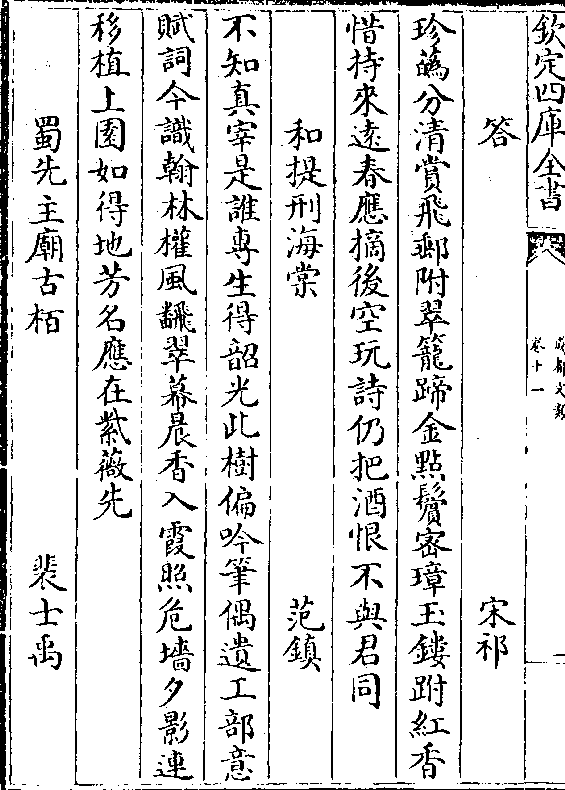 欽定四庫全書
成都文類
卷十一
答 宋祁
珍蘤分清賞飛郵附翠籠蹄金點鬢密璋玉鏤跗紅香
惜持來遠春應摘後空玩詩仍把酒恨不與君同
和提刑海棠 范鎮
不知真宰是誰專生得韶光此樹偏吟筆偶遺工部意
賦詞今識翰林權風翻翠幕晨香入霞照危墻夕影連
移植上園如得地芳名應在紫薇先
蜀先主廟古栢 裴士禹